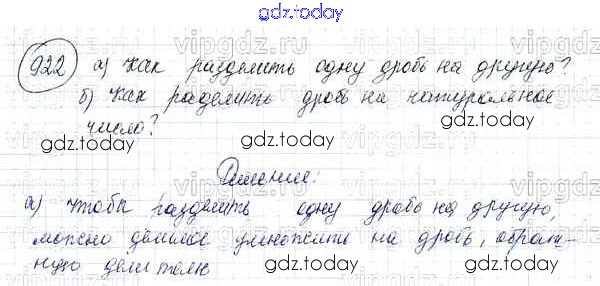 gdz.today
922 а) Как разделить одну дробь на другую?
б) Как раделить дробь на натуральное
число?
gdz.today
gdz.today
Решение:
а) Чтобы разделить одну дробь на другую,
можно делимое умножить на дробь, обрат-
ную делителю
gdz.today
gdz.today
gdz.today